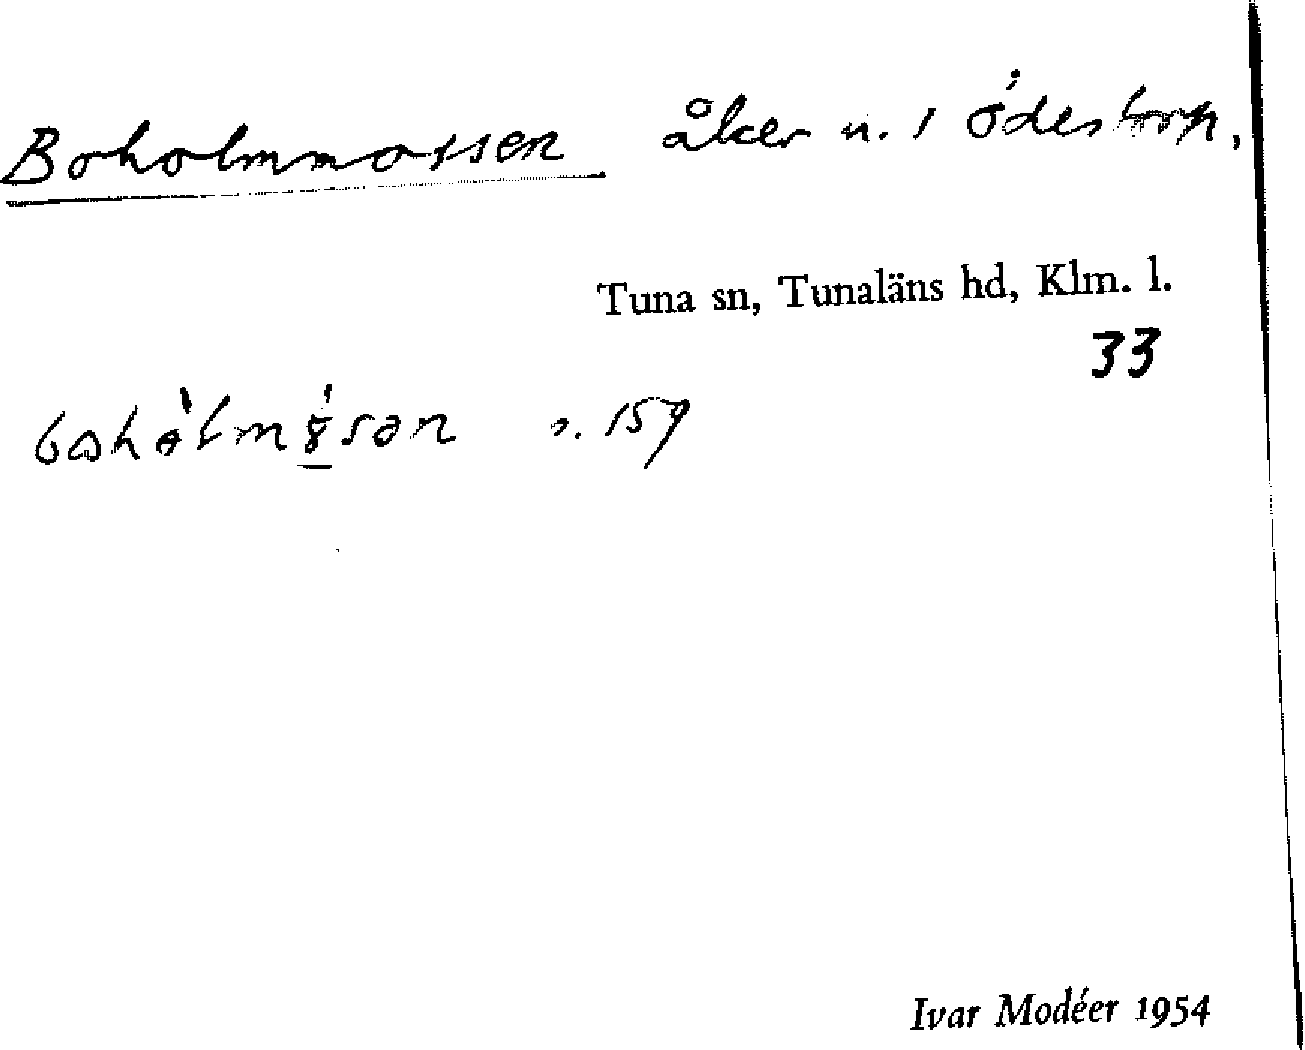 Boholmmossen åker u. 1 Ödestorp,
Tuna sn, Tunaläns hd, Klm. l.
33
s. 159
Ivar Modéer 1954